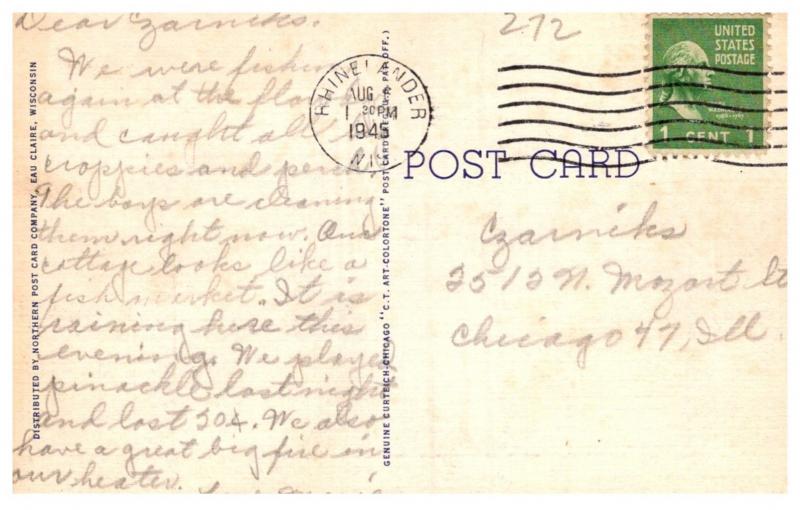 Dear Czarniks.
We were fishing
again at the
and caught all
croppies and perch.
The boys are cleaning
them right now. Our
cottage looks like a
fish market. It is
raining here this
evening. We played
pinackle last night
and lost 20¢. We also
have a great big fire in
our heater.
272
RHINELANDER
AUG
1 30PM
1945
WIS.
UNITED
STATES
POSTAGE
1 CENT 1
POST CARD
Czarniks
2513 N. Mozart St
Chicago 47, Ill.
DISTRIBUTED BY NORTHERN POST CARD COMPANY, EAU CLAIRE, WISCONSIN
GENUINE CURTEICH-CHICAGO "C.T. ART-COLORTONE" POST CARD (REG. U.S. PAT. OFF.)